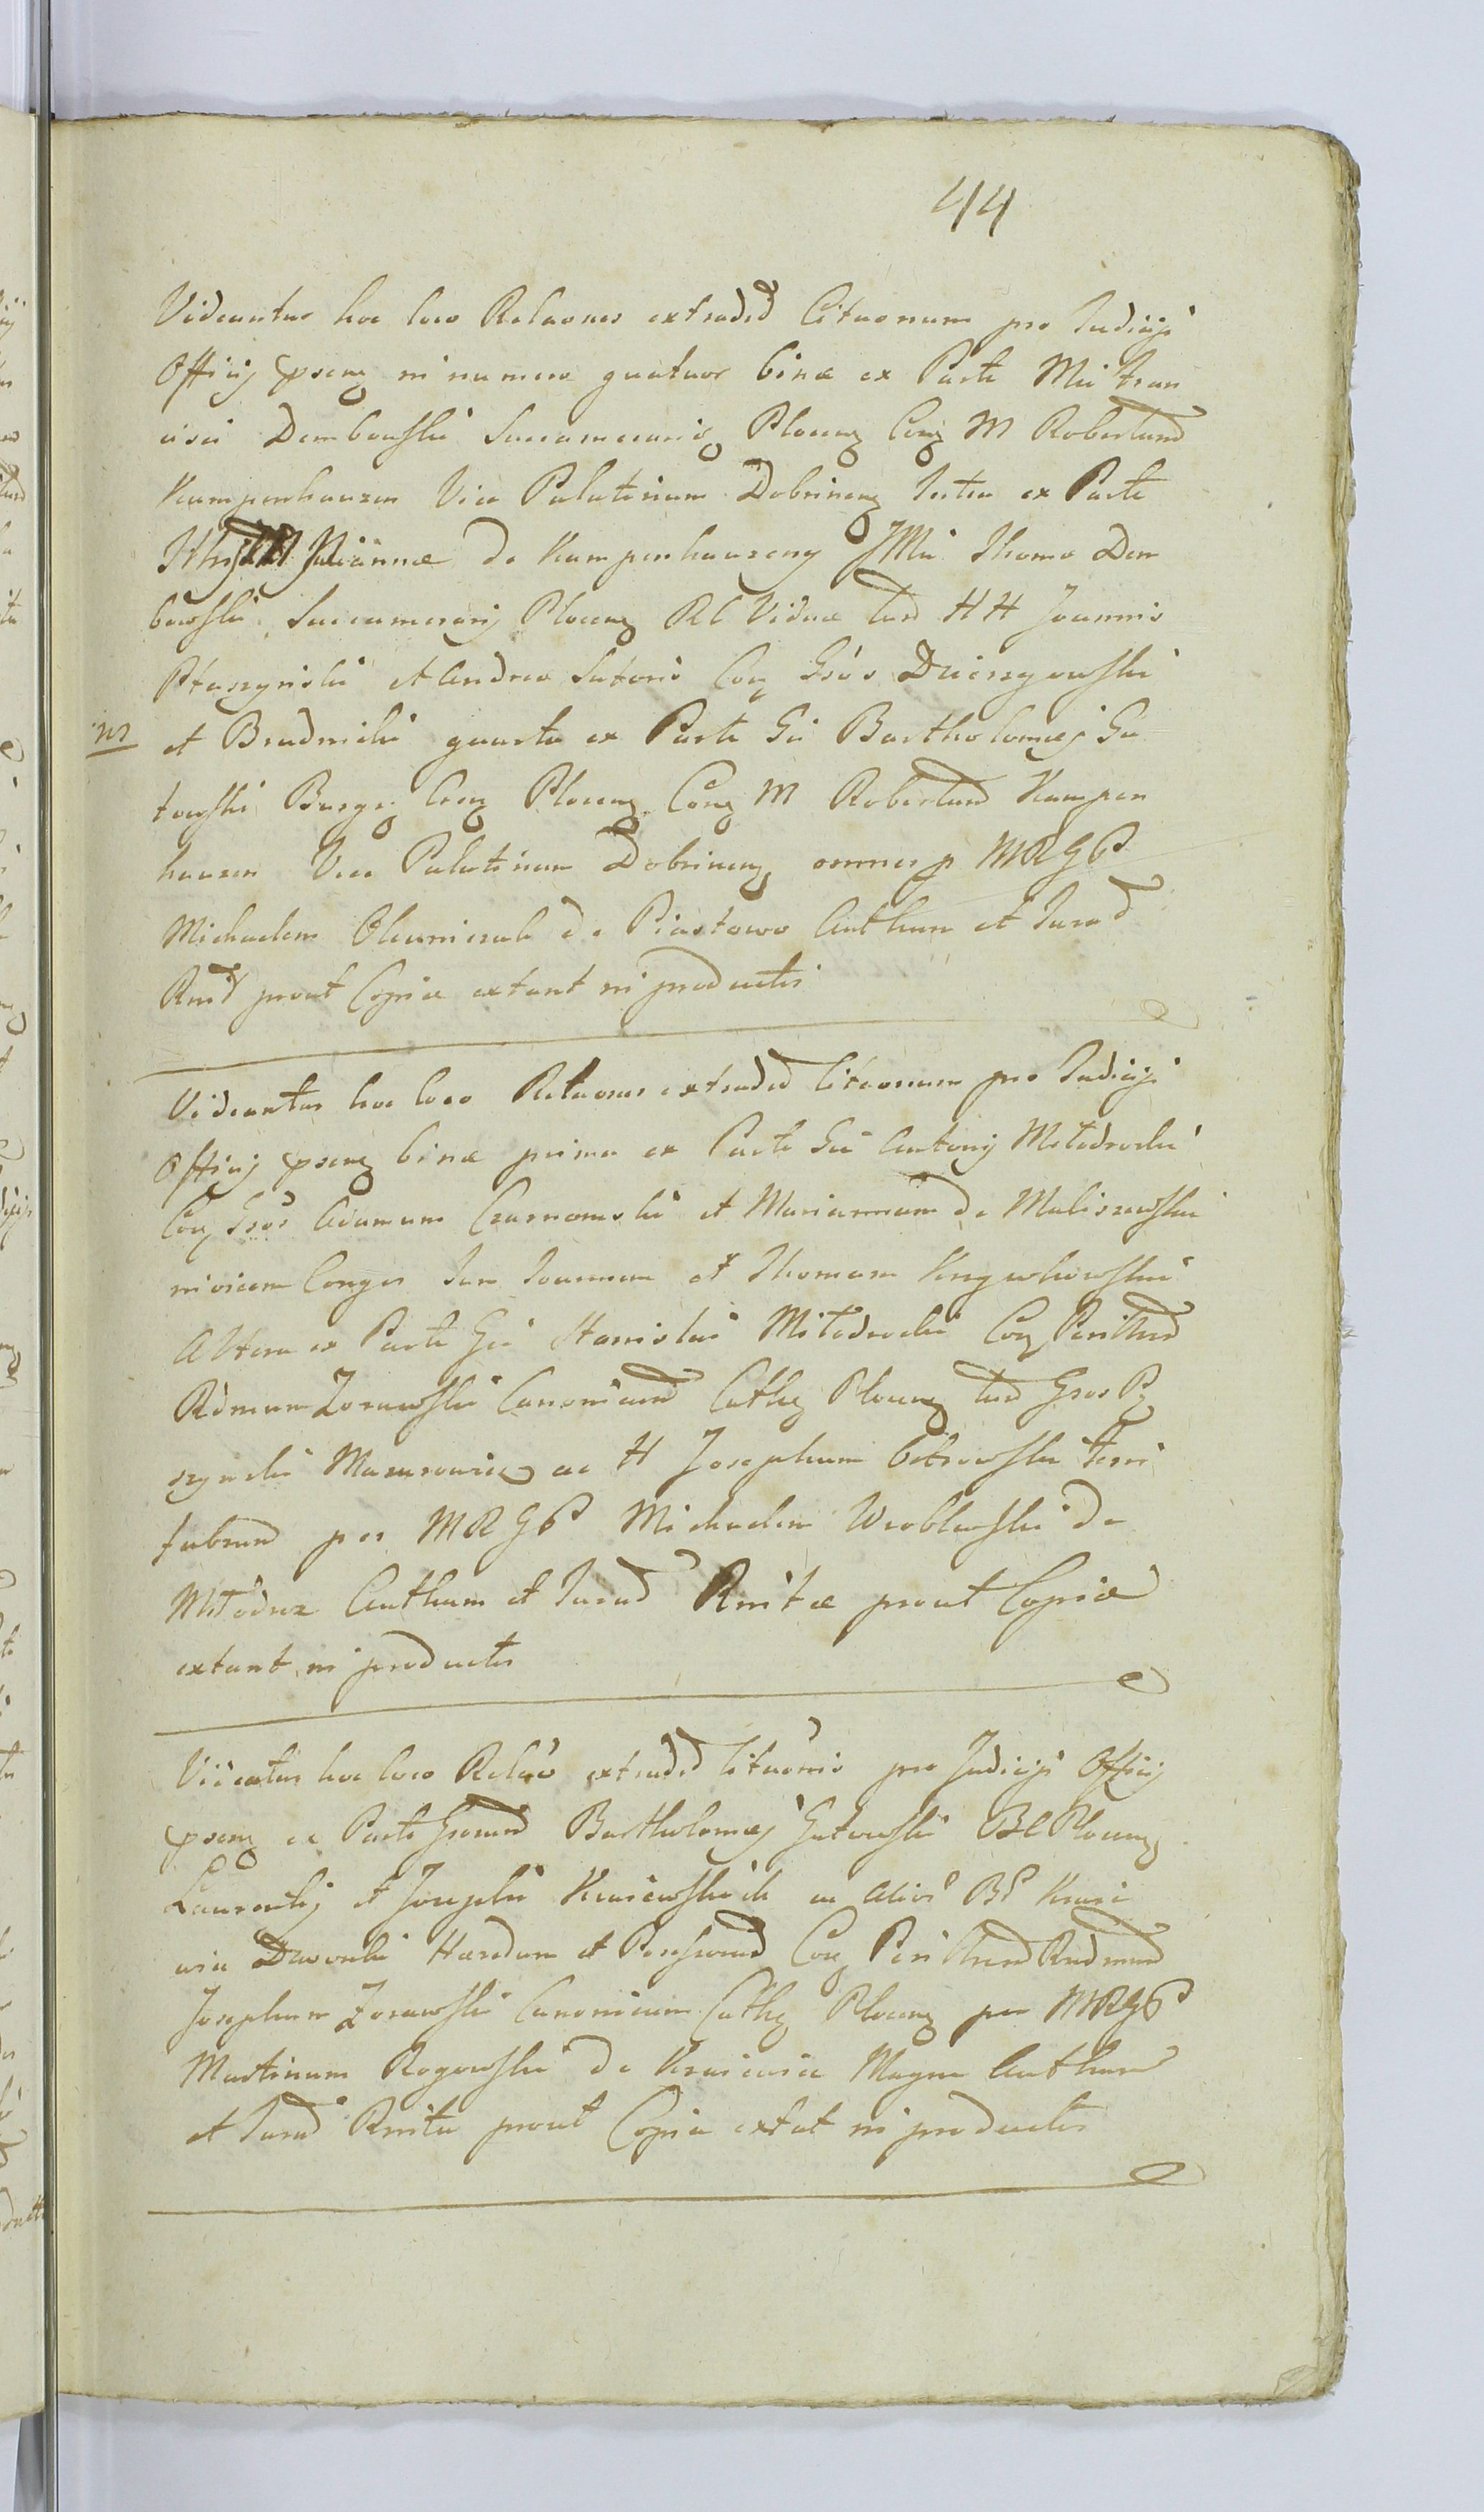 44
Videantur hoc loco Relaones extraded Citaonum pro Judicijs
Officij psenq in numero quatuor binæ ex Parte Mci Fran
cisci Dembowski Succamerarij Plocenq Conq M Robertum
Kampenhauzen Vice Palatinum Dobrinenq Tertia ex Parte
Juliannæ de Kampenhauzenq JMci Thomæ Dem
bowski Succamerarij Plocenq RC Viduæ tum HH Joannis
Ptaszynski et Andreæ Sutoris Conq Gsos Dzierzgowski
ns et Brudnicki quarta ex Parte Gsi Bartholomæj Gu
towski Burgq Crcq Plocenq Conq M Robertum Kampen
hauzen Vice Palatinum Dobrinenq omnes p MRGP
Michaelem Olewniczak de Piastowo Authum et Jurad
Rnit prout Copiæ extant in productis
Videantur hoc loco Relaones extraded Citaonum pro Judicijs
Officij psenq binæ prima ex Parte Gsi Antonij Młodzocki
Conq Gsos Adamum Czarnomski et Mariannam de Maliszewskie
invicem Conges Jan Joannem et Thomam Krzywkowskie
Altera ex Parte Gsi Stanislai Młodzocki Conq Perillum
Rdmum Zorawski Canonicum Cathq Plocenq tum Gsos
Mazurowicz ac H Josephum
fabrum per MRGP Michaelem Wroblewski de
Młodzoz Authum et Jurad Rnitæ prout Copiæ
extant in productis
Videatur hoc loco Relao extraded Citaonis pro Judicijs Officij
psenq ex Parte Gsorum Bartholomæj Gutowski BC Plocenq
Laurentij et Josephi Krasiewskich ac alior BP Krasi
wia Dworski Hæredum et Possorum Conq Perillum Rndmum
Josephum Zorawski Canonicum Cathq Plocenq per MRGP
Martinum Rogowski de Krasiewia Magna Authum
et Jurad Rnita prout Copia extat in productis